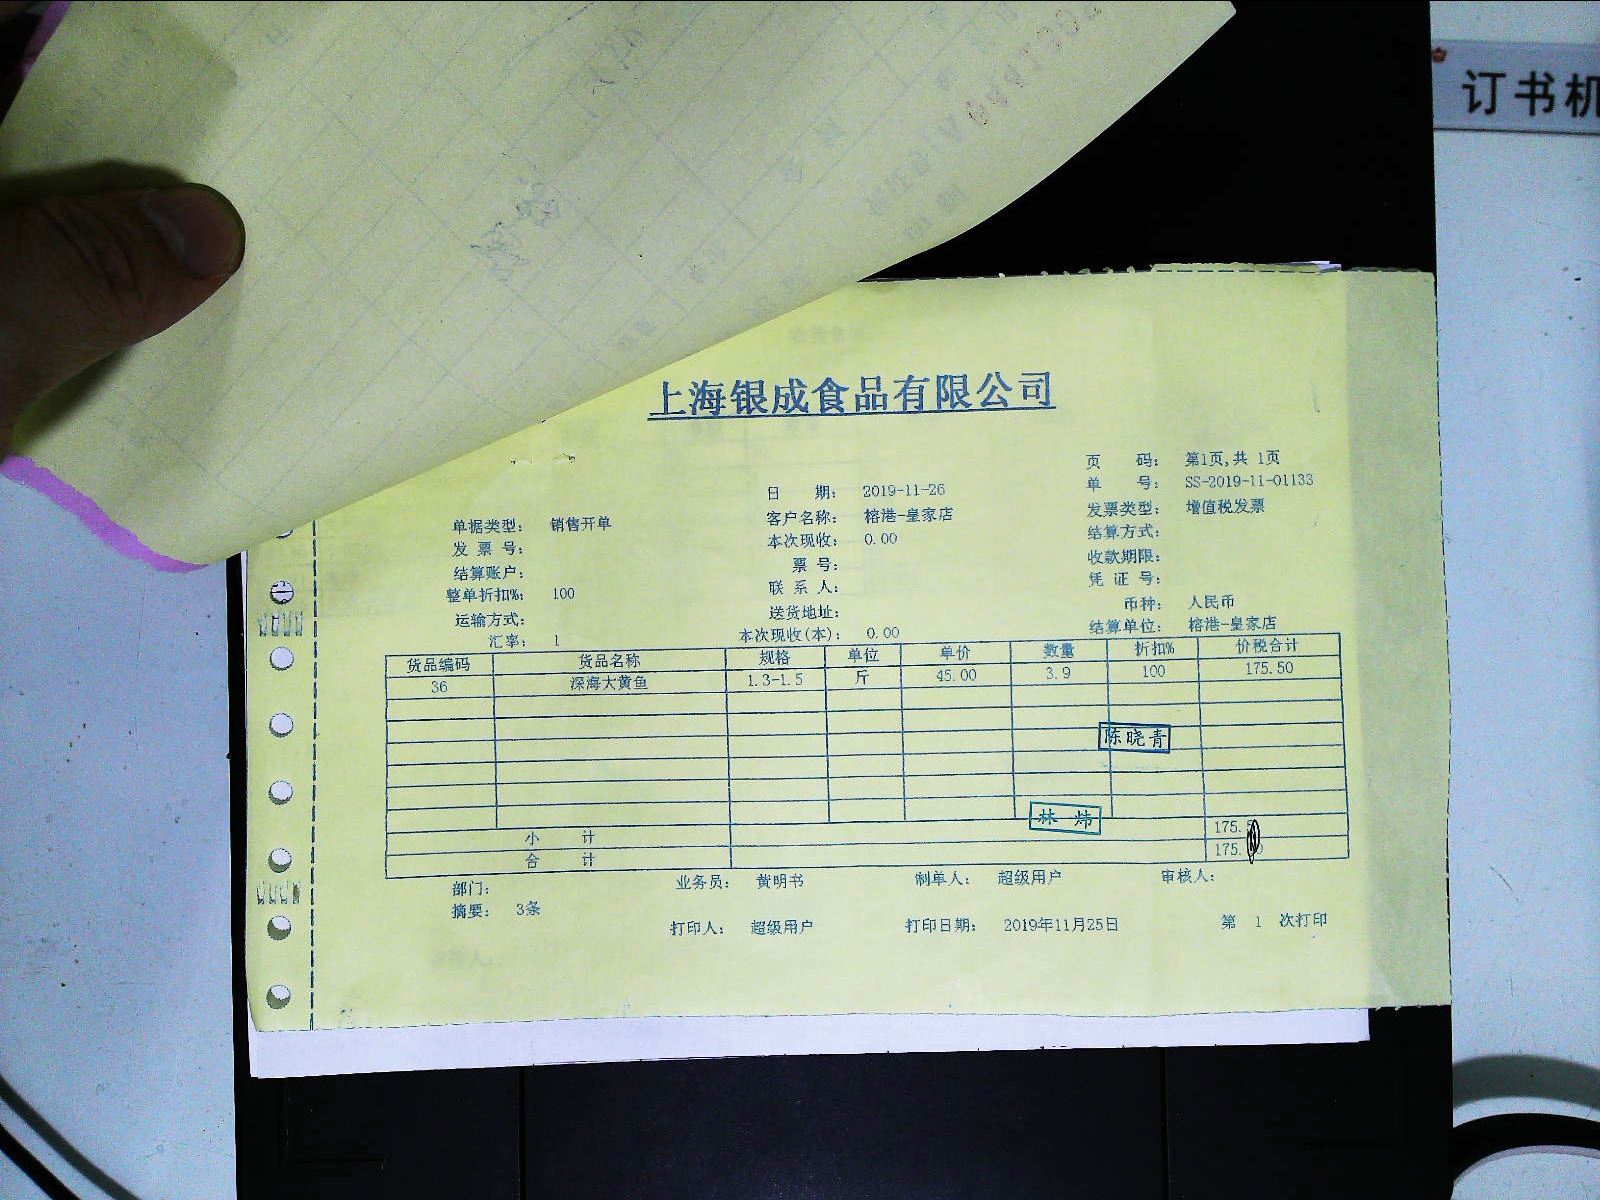 订书机
上海银成食品有限公司
页 码: 第1页,共 1页
日 期: 2019-11-26 单 号: SS-2019-11-01133
单据类型: 销售开单 客户名称: 榕港-皇家店 发票类型: 增值税发票
发 票 号: 本次现收: 0.00 结算方式:
结算账户: 票 号: 收款期限:
整单折扣%: 100 联 系 人: 凭 证 号:
运输方式: 送货地址: 币种: 人民币
汇率: 1 本次现收(本): 0.00 结算单位: 榕港-皇家店
货品编码 货品名称 规格 单位 单价 数量 折扣% 价税合计
36 深海大黄鱼 1.3-1.5 斤 45.00 3.9 100 175.50
陈晓青
林 炜
小 计 175.
合 计 175.
部门: 业务员: 黄明书 制单人: 超级用户 审核人:
摘要: 3条
打印人: 超级用户 打印日期: 2019年11月25日 第 1 次打印